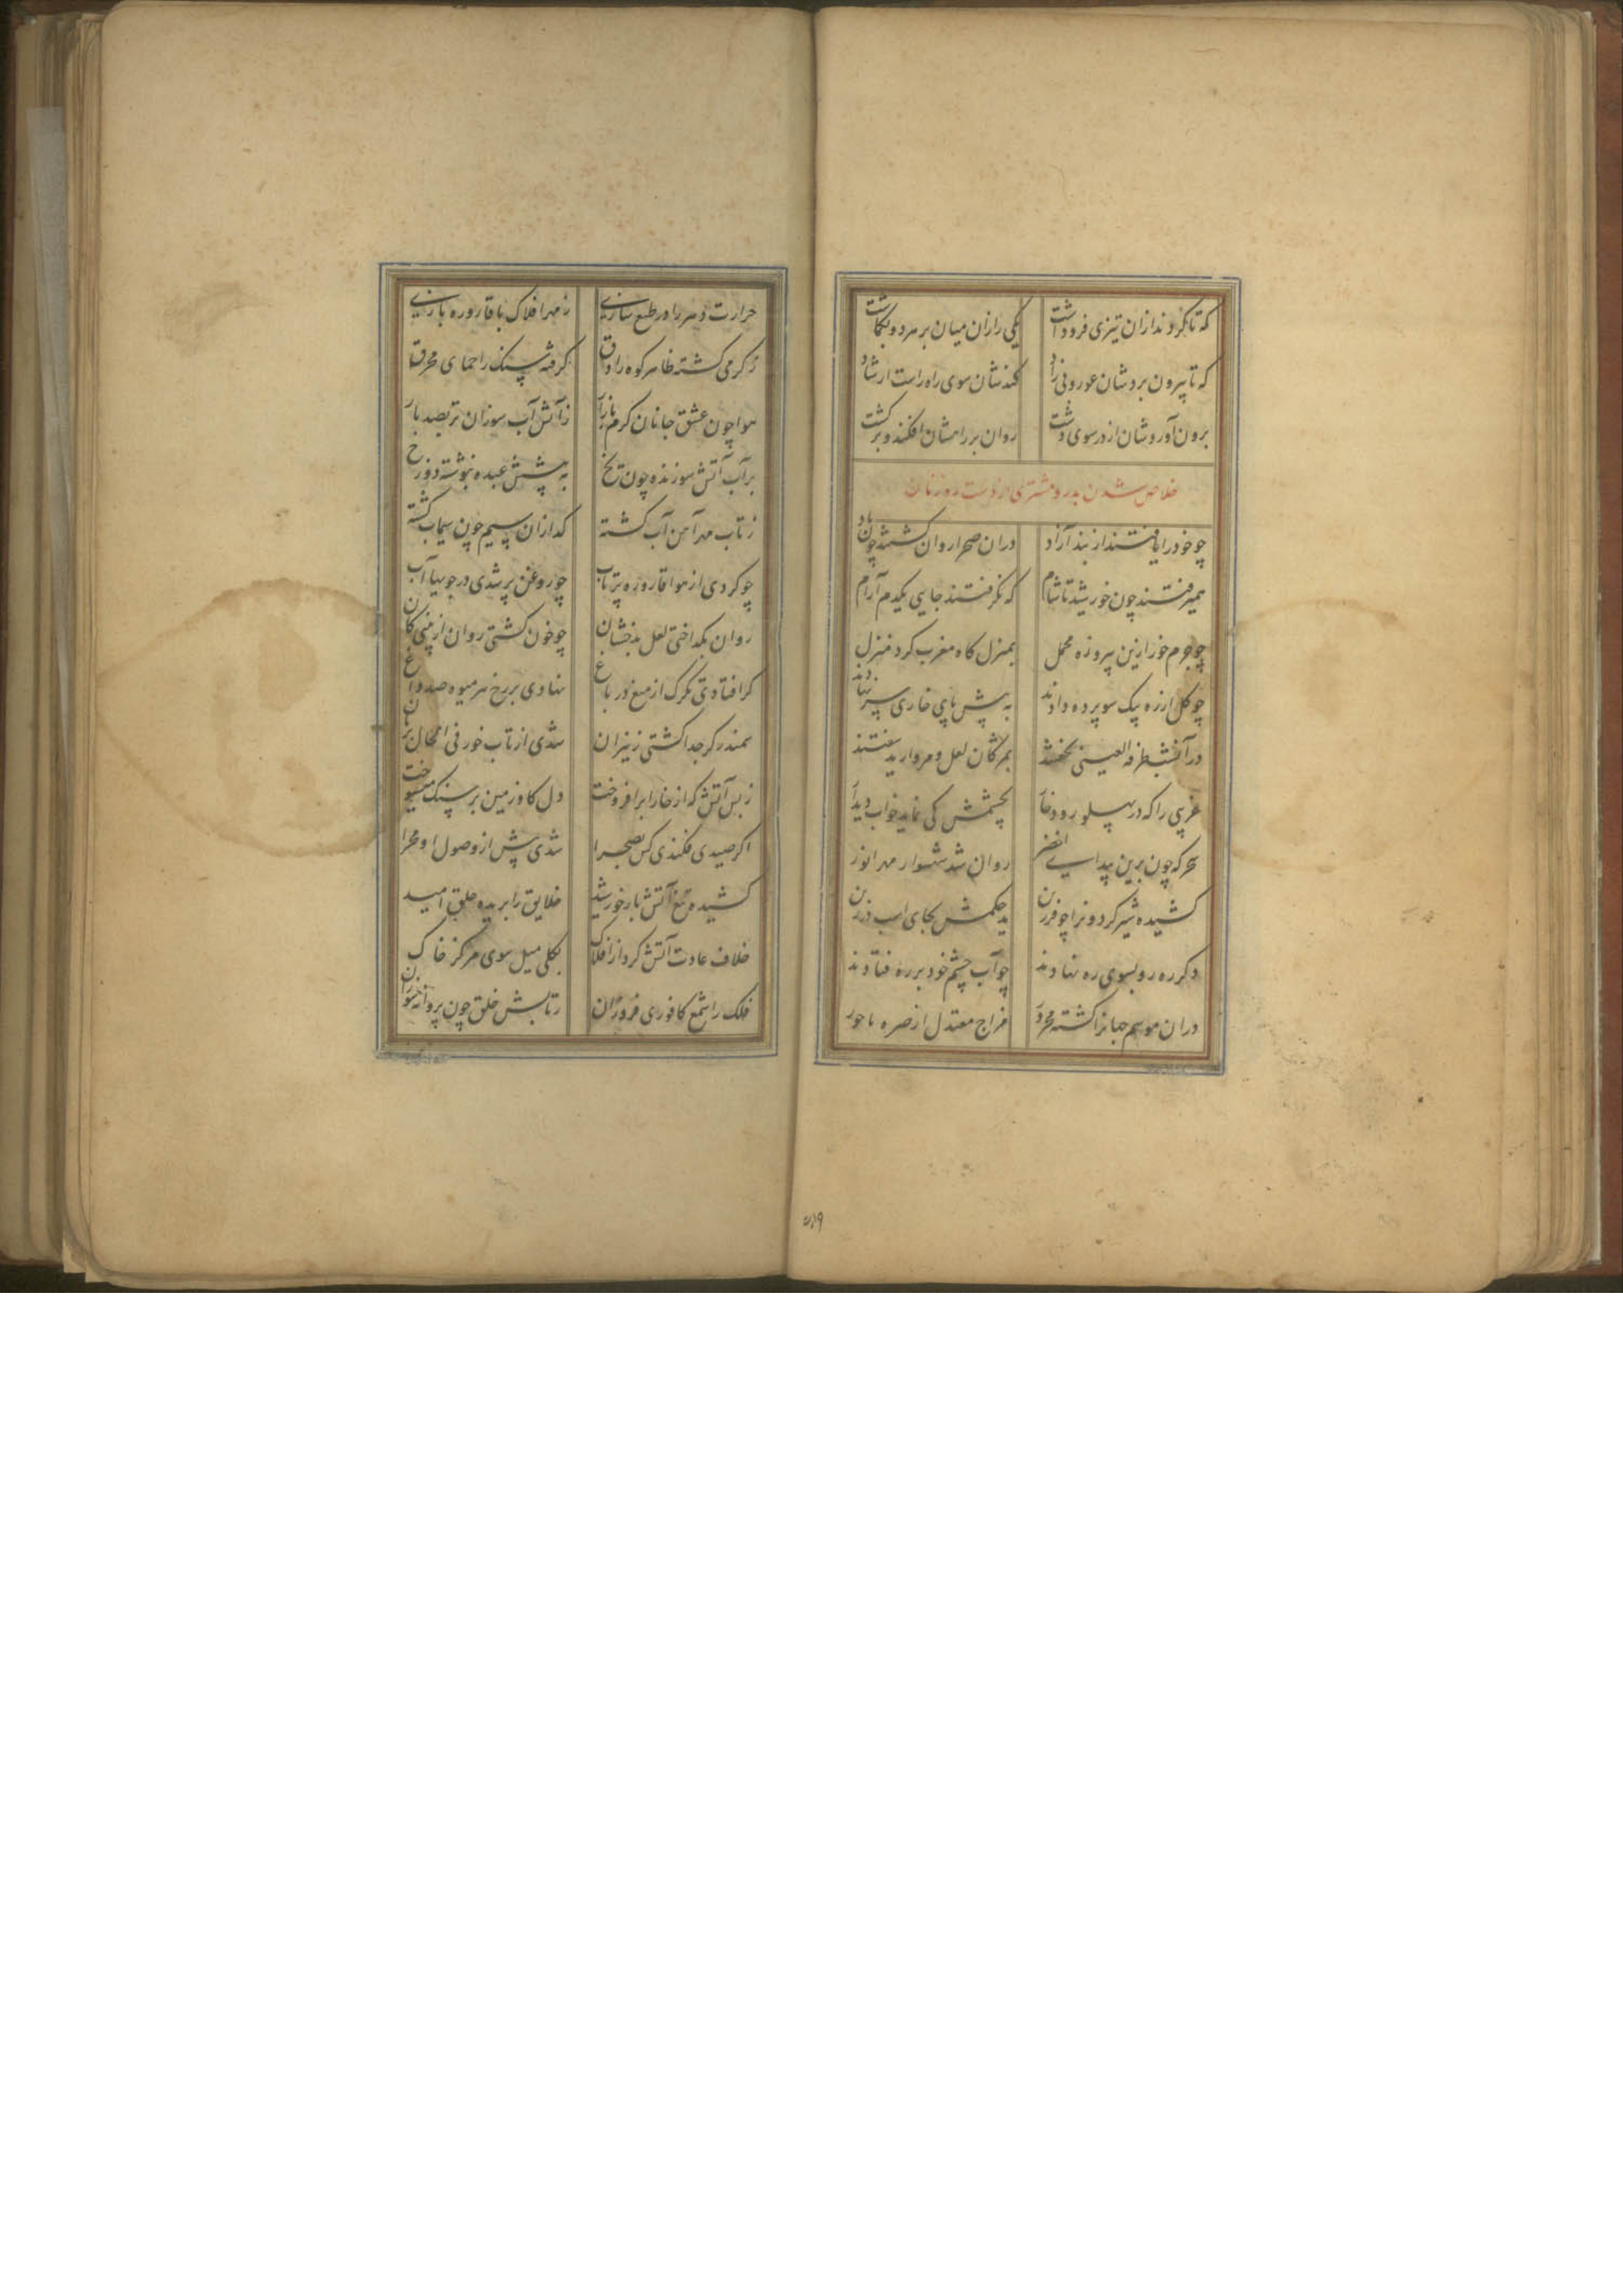 که تا نکردند ازان تیزی فروداشت یکی را زان میان بر هر دو بکماشت
که تا بیرون بردشان بی زاد کندشان سوی راه راست ارشاد
برون آوردشان از در سوی دشت روان بر راهشان افکند و برکشت
خلاص شدن بدر و مشتری از دست روزبان
چو خود را یافتند از بند آزاد دران صحرا روان کشتند چون باد
همیرفتند چون خورشید تا شام که نکرفتند جایی یکدم آرام
چو جرم خور ازین پیروزه محمل بمنزل کاه مغرب کرد منزل
چو کل از ره بیک سو پرده دادند به پیش پای خاری سر نهادند
دران شب طرفة العینی نخفتند بمژکان لعل و مروارید سفتند
غریبی را که در پهلو رود خار بچشمش کی نماید خواب دیدار
سحرکه چون برین بیدای اخضر روان شد شهسوار مهر انور
کشیده شیر کردونرا چو فرزین بد حکمش بجای اسب در زین
دکرره رو بسوی ره نهادند چو آب چشم خود بر ره فتادند
دران موسم جهانرا کشته محرور مزاج معتدل از صره باحور
حرارت دهر را در طبع سازی ز مهر افلاک با قاروره بازی
ز کرمی کشته ظاهر کوه را دق کرفته سنک را حمای محرق
هوا چون عشق جانان کرم بازار ز آتش آب سوزان تر بصد بار
بر آب آتش سوزنده چون یخ به پیشش عبده نبوشته دوزخ
ز تاب مهر آهن آب کشته کدازان سیم چون سیماب کشته
چو کردی از هوا قاروره پرتاب چو روغن پر شدی در جویها آب
روان بکداختی لعل بدخشان چو خون کشتی روان از بینی کان
کر افتادی تکرک از میغ در باغ نهادی بر رخ هر میوه صد داغ
سمندر کر جدا کشتی ز نیران شدی از تاب خور فی الحال بریان
ز بس آتش که از خارا برافروخت دل کاو زمین بر سنک میسوخت
اکر صیدی فکندی کس بصحرا شدی پیش از وصول او مهرا
کشیده تیغ آتش بار خورشید خلایق را بریده حلق امید
خلاف عادت آتش کرد از افلاک بکلی میل سوی مرکز خاک
فلک را شمع کافوری فروزان ز تابش خلق چون پروانه سوزان